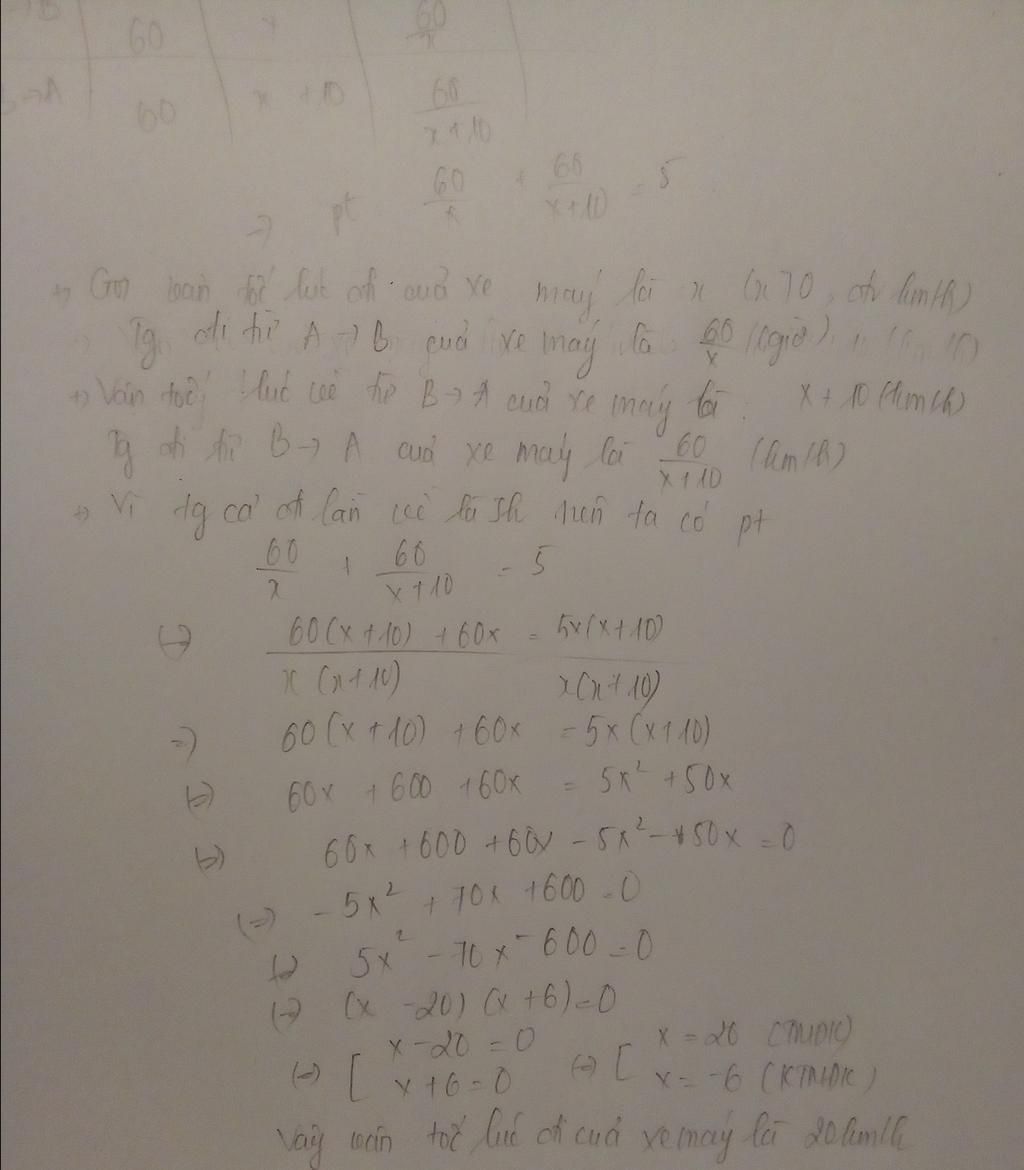 →B | 60 | x | 60/x
B→A | 60 | x + 10 | 60/(x+10)
=> pt 60/x + 60/(x+10) = 5
+) Gọi vận tốc lúc đi của xe máy là x (x>0, đv km/h)
Tg đi từ A → B của xe máy là 60/x (giờ)
+) Vận tốc lúc về từ B → A của xe máy là: x + 10 (km/h)
Tg đi từ B → A của xe máy là 60/(x+10) (km/h)
+) Vì tg cả đi lẫn về là 5h nên ta có pt
60/x + 60/(x+10) = 5
(=) (60(x+10) + 60x)/(x(x+10)) = 5x(x+10)/(x(x+10))
=) 60(x+10) + 60x = 5x(x+10)
(=) 60x + 600 + 60x = 5x² + 50x
(=) 60x + 600 + 60x - 5x² - 50x = 0
(=) - 5x² + 70x + 600 = 0
(=) 5x² - 70x - 600 = 0
(=) (x - 20) (x + 6) = 0
(=) [ x - 20 = 0 (=) [ x = 20 (TMĐK)
x + 6 = 0 x = -6 (KTMĐK)
Vậy vận tốc lúc đi của xe máy là 20km/h